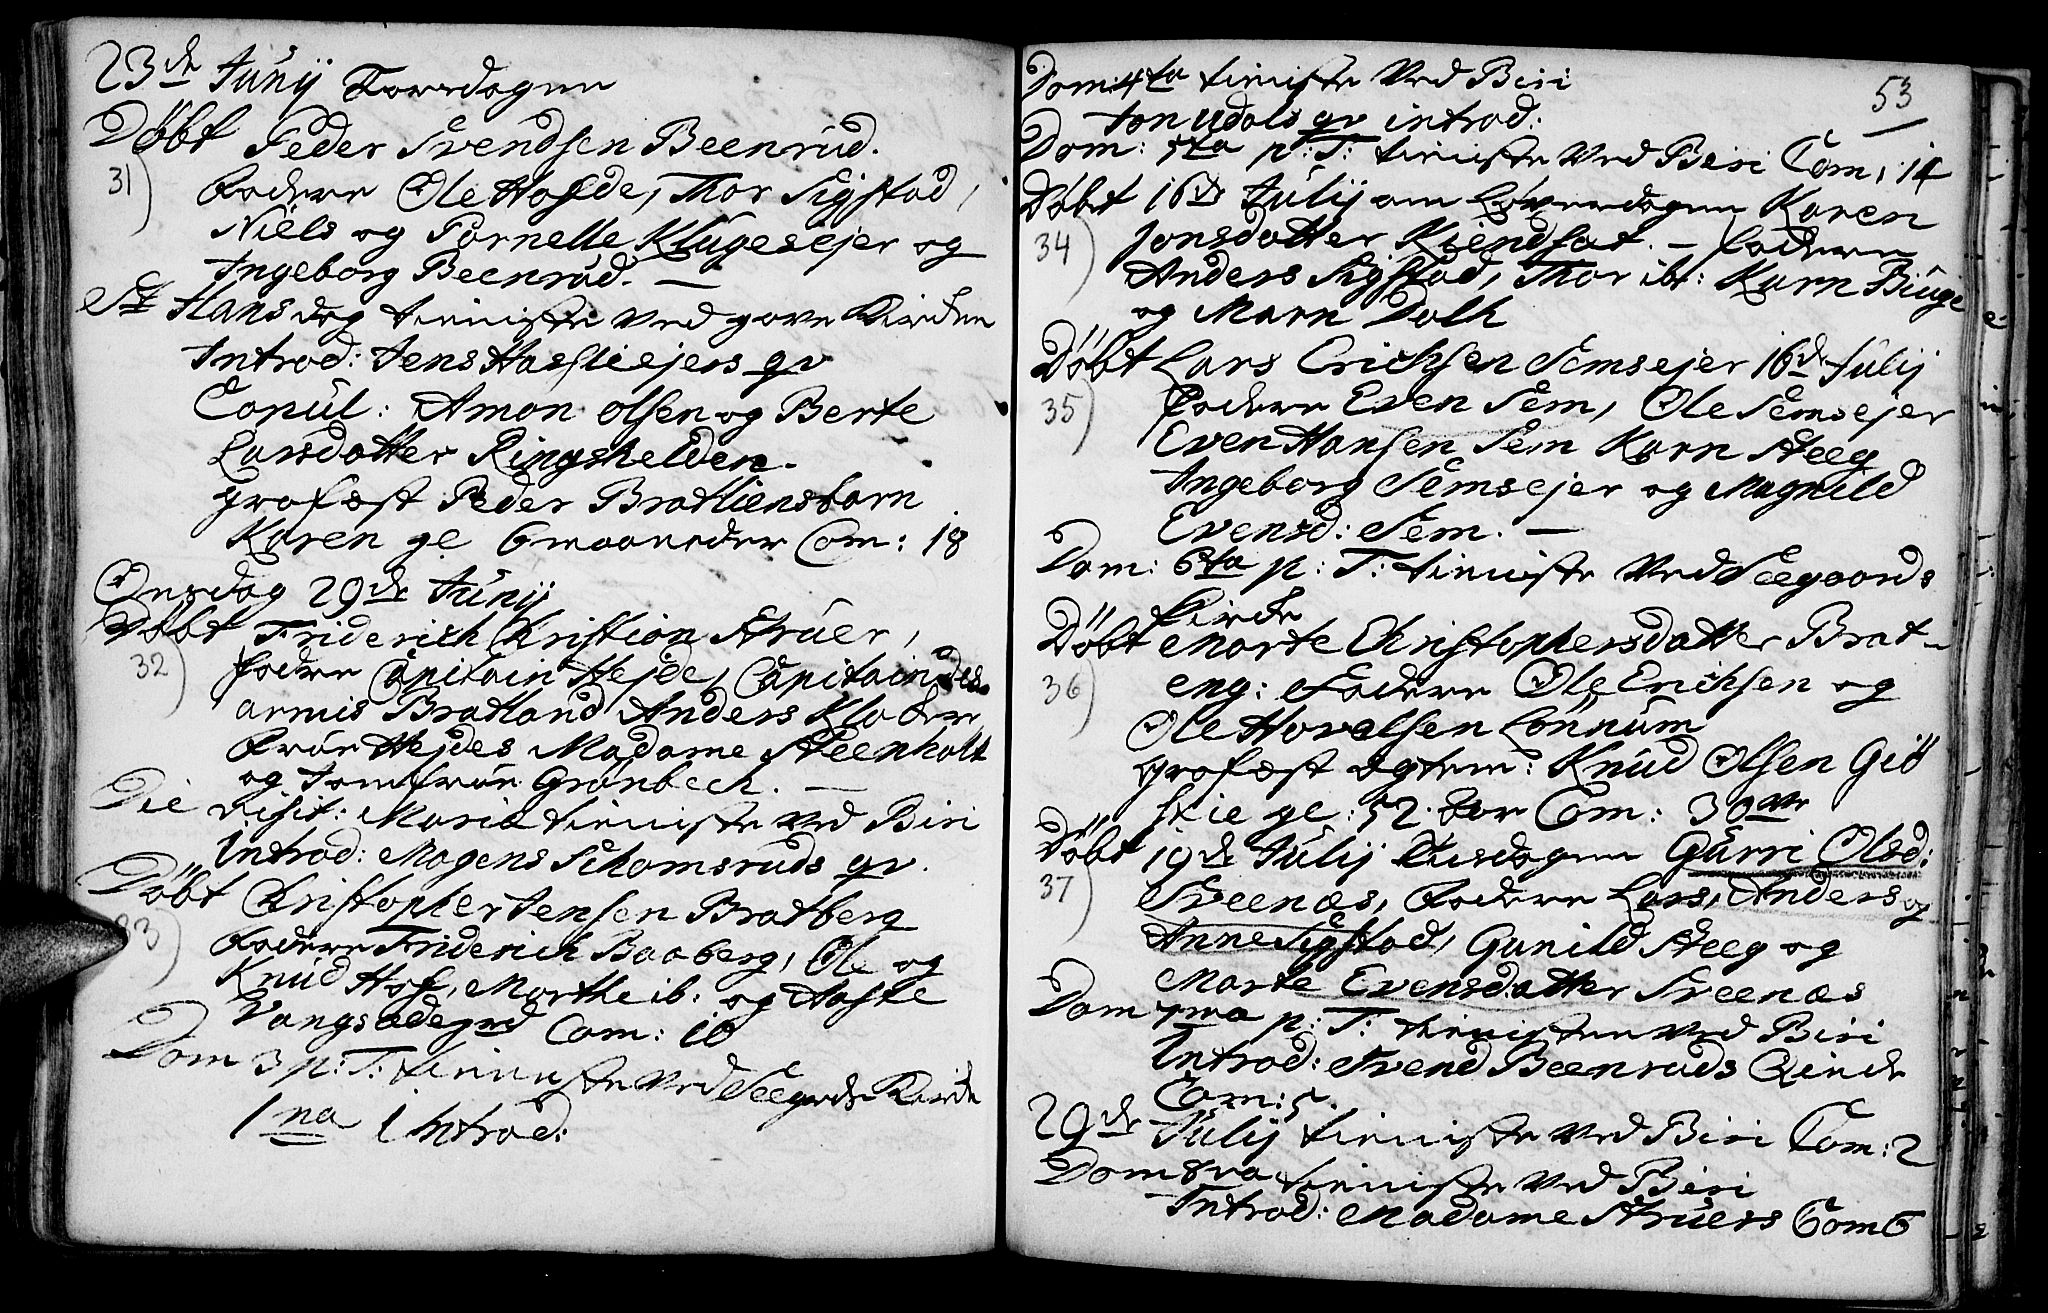 23de Junij Torsdagen
Døbt Peder Svendsen Beenrud.
31) Faddere Ole Hofde, Thor Sigstad,
Niels og Pornelle Klugesejer og
Ingeborg Beenrud. —
St Hans dag tieniste ved Kirken
Introd: Jens Hasliejers qv
Copul: Amon Olsen og Berte
Larsdatter Ringshelden.
grafæst Peder Bratliens barn
Karen ge 6 maaneder Com: 18
Onsdag 29de Junij
Døbt Friderich Kristian Strüer,
32) faddere Capitain Hejde, Capitain des
armis Bratland Anders
Frue Hejdes Madame Steenholt
og Jomfrue Grønbech. —
Die visit: Mariæ tieniste ved Biri
Introd: Mogens Schamsruds qv.
Døbt Christopher Jensen Bratberg
33) Faddere Friderich Baaberg, Ole og
Knud Hof, Marthe ib: og Aaste
Vangsødegrd Com: 10
Dom 3 p: T: tieniste ved Seegrds Kirke
1na introd:
53
Dom 4ta tieniste ved Biri
Jon Udals qv introd:
Dom: 5ta p: T: tieniste ved Biri Com: 14
Døbt 16de Julij om Løverdagen Karen
34) Jonsdatter Kiendsat. — Faddere
Anders Sigstad, Thor ib: Karn Biuge
og Marn Dalh
Døbt Lars Erichsen Semsejer 16de Julij
35) Faddere Even Sem, Ole Semsejer
Even Hansen Sem Karn Steeg
Ingeborg Semsejer og Magnild
Evensd: Sem. —
Dom: 6ta p: T: tieniste ved Seegaards
Kirke
Døbt Marte Christophersdatter Brat-
36) eng: Faddere Ole Erichsen og
Ole Hovelsen Lønnum
grafæst Knud Olsen Giö
slie ge: 52 aar Com: 30
Døbt 19de Julij Tiisdagen Gurri Olsd:
37) Sveenæs, Faddere Lars, Anders og
Anne Sigstad, Gunild Steeg og
Marte Evensdatter Sveenæs
Dom 7ma p: T: tienisten ved Biri
Introd: Svend Beenruds Qinde
Com: 5.
29de Julij tieniste ved Biri Com: 2
Dom 8va tieniste ved Biri
Introd: Madame Strüers Com 6